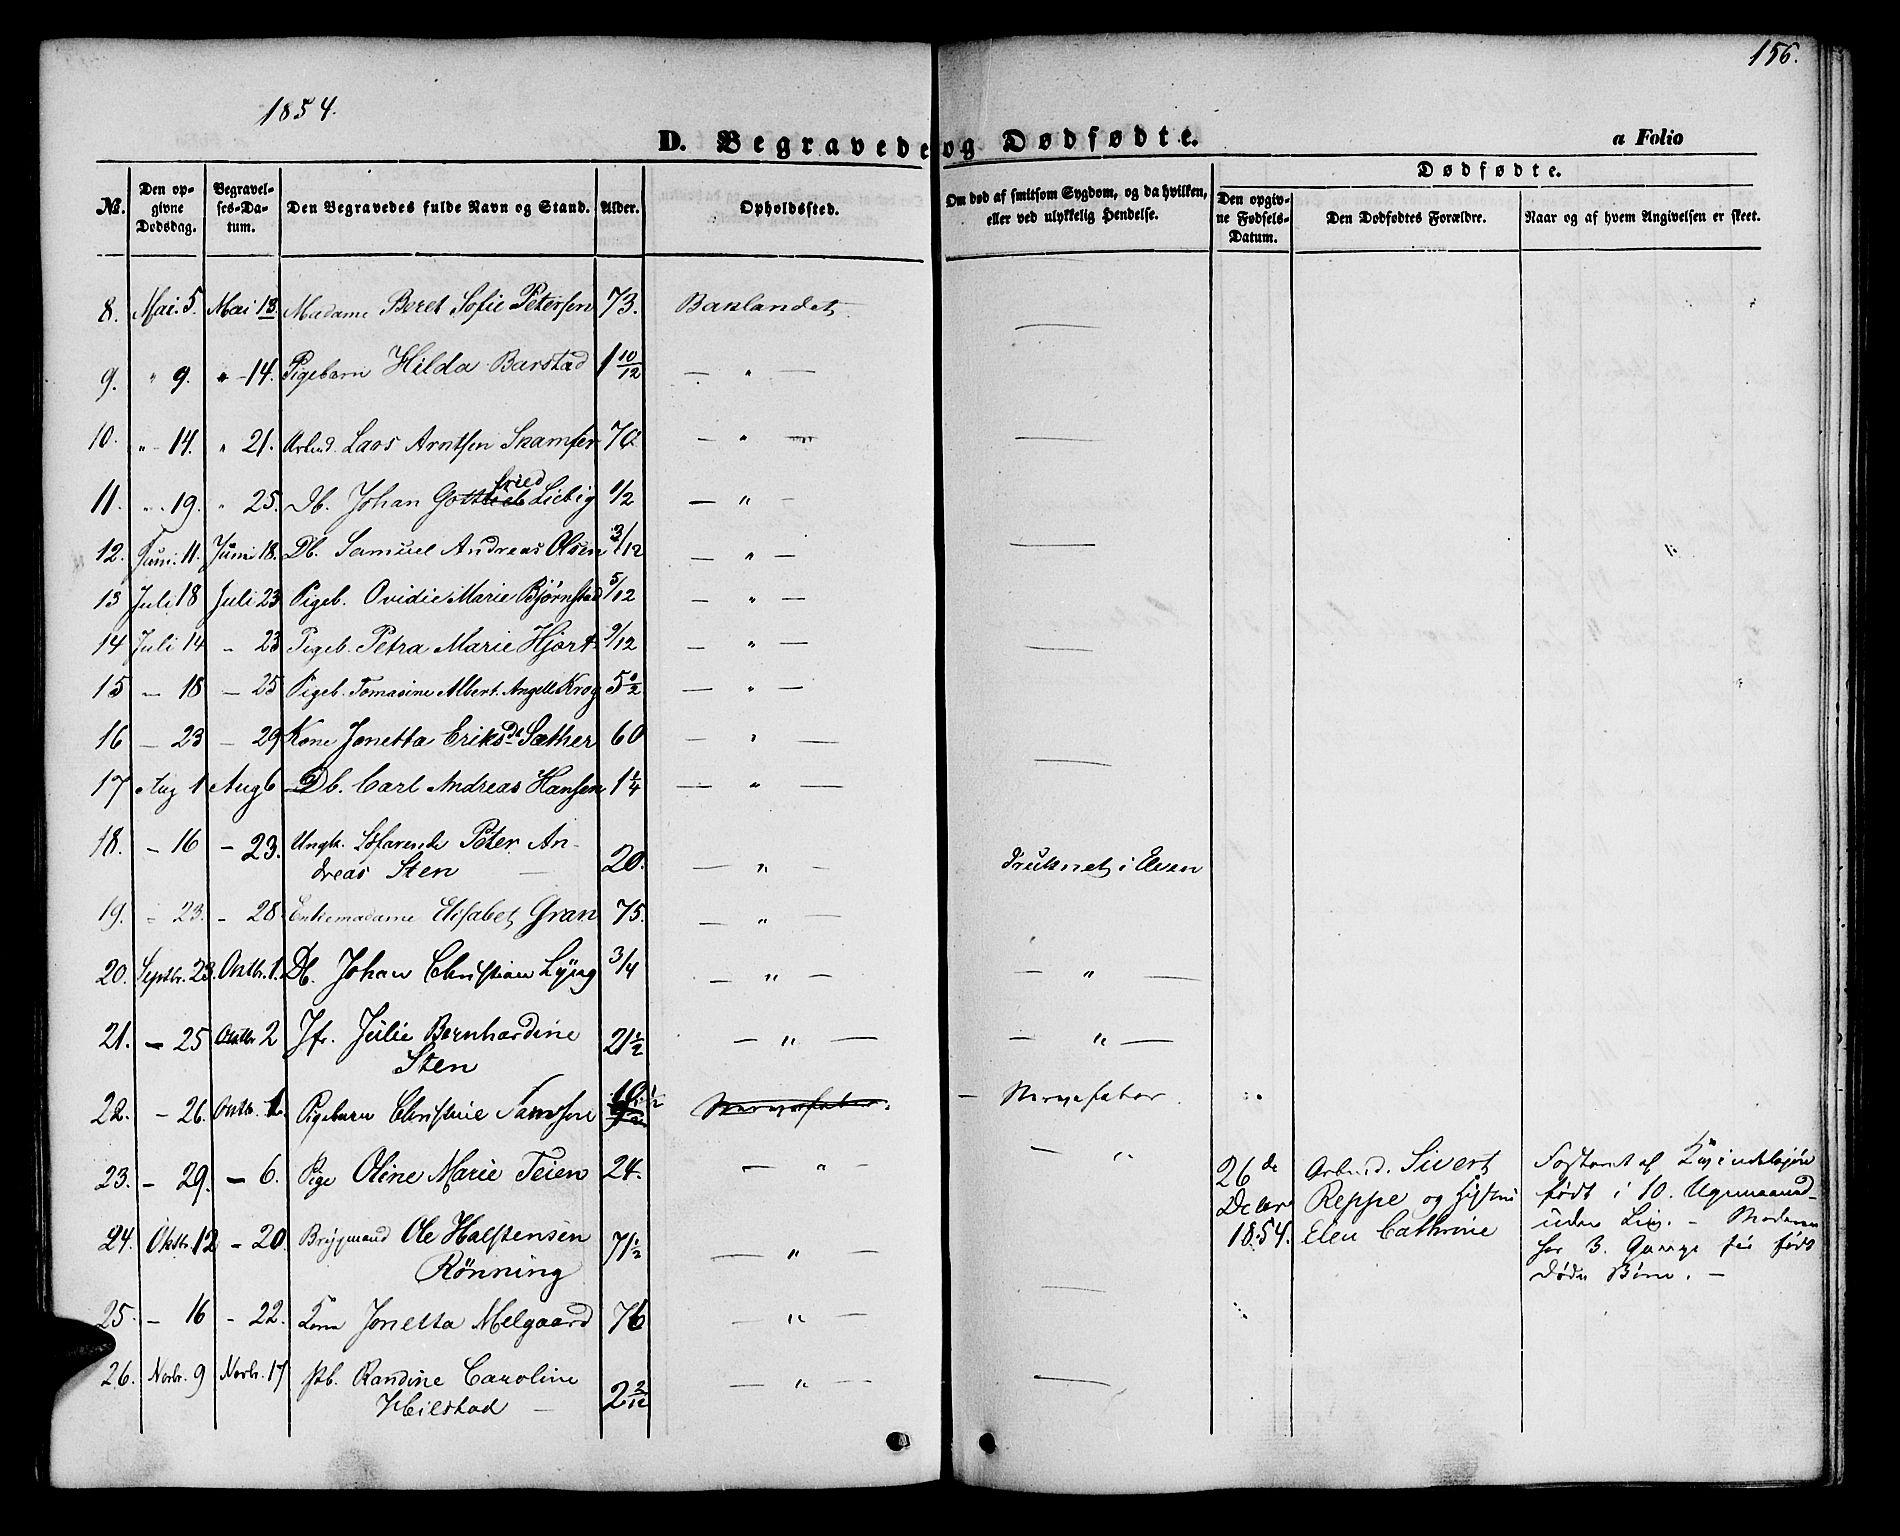 156.
1854.
D. Begravede og Dødfødte.
a Folio
Dødfødte.
No. Den opgivne Dødsdag. Begravelses-Datum. Den Begravedes fulde Navn og Stand. Alder. Opholdssted. Om død af smitsom Sygdom, og da hvilken, eller ved ulykkelig Hendelse. Den opgivne Fødsels-Datum. Den Dødfødtes Forældre. Naar og af hvem Angivelsen er skeet.
8. Mai. 5. Mai 13. Madame Beret Sofie Petersen 73. Baklandet. —
9. " 9. " - 14. Pigebarn Hilda Barstad 1 10/12 — " —
10. " 14. " 21. Arbmd. Laos Arntsen Skamfer 70. — " — —
11. " 19. " 25. Db. Johan Gottfried Liebig 1/2 — " —
12. Juni. 11. Juni 18. Db. Samuel Andreas Olsen 3/12 — " — —
13 Juli 18 Juli 23 Pigeb. Ovidie Marie Bjørnstad 5/12 — " —
14 Juli 14 - 23 Pigeb. Petra Marie Hjort 9/12 — " — —
15 — 18 — 25 Pigeb. Tomasine Albert. Angell Krog 5 1/2 — " —
16 — 23 — 29 Kone Jonetta Eriksdt Sæther 60 — " —
17 Aug 1 Aug 6 Db. Carl Andreas Hansen 1 1/4 — " —
18. — 16 — 23. Ungk. Søfarende Peter An-
dreas Sten — 20. — " — Druknet i Elven
19. - 23. - 28. Enkemadame Elisabet Gran 75. — " —
20. Septbr. 23. Oktbr. 1. Db. Johan Christian Lyng 3/4 — " — — " —
21. — 25 Oktbr 2 Jfr. Julie Bernhardine
Sten 21 1/2 — " — — " —
22. — 26. Oktb. 1. Pigebarn Christine — Nervefeber.
23. — 29. — 6. Pige Oline Marie Teien 24. — " — — "
24. Oktbr. 12 — 20. Ole Halstensen
Rönning 71 1/2 — " —
25. — 16 - 22. Kone Jonetta Melgaard 76 — " — —
26. Novbr. 9 Novbr. 17 Pb. Randine Caroline
Heilstad — 2 2/12 — " — —
26de
Decbr
1854.
Arbmd. Sivert
Reppe og Hustru
Elen Cathrine
født i 10.
uden Liv. - Moderen
har 3. Gange før født
døde Børn. —